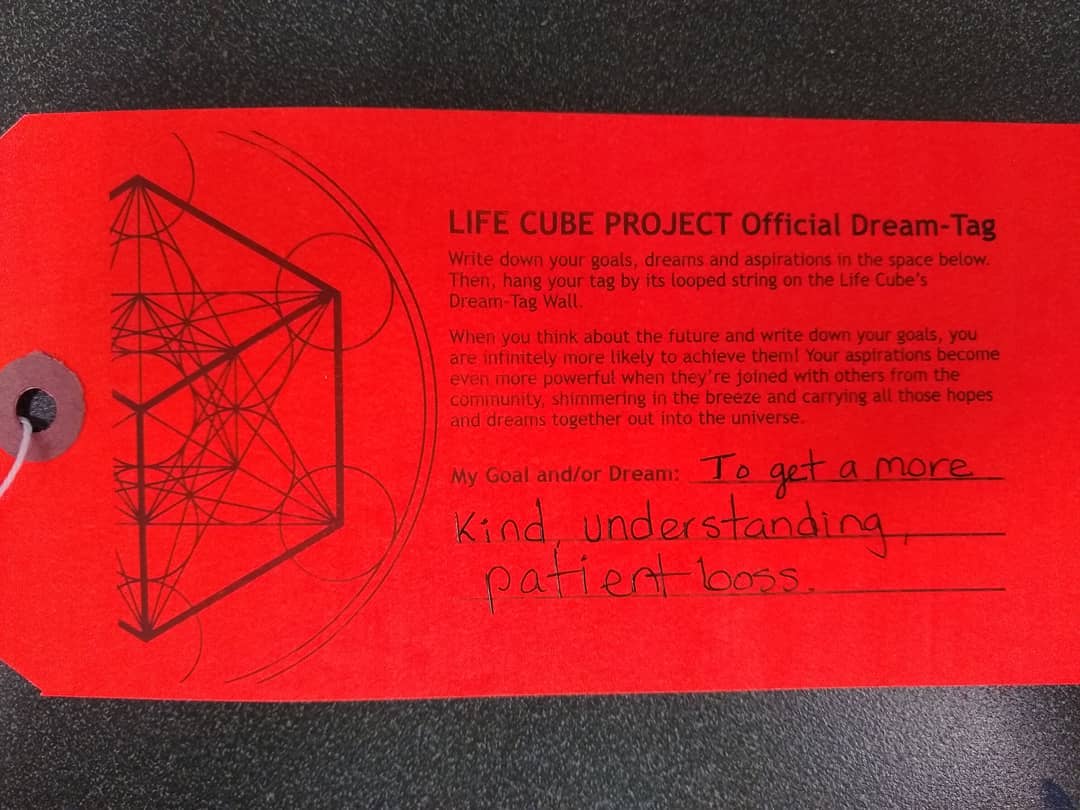 LIFE CUBE PROJECT Official Dream-Tag
Write down your goals, dreams and aspirations in the space below.
Then, hang your tag by its looped string on the Life Cube's
Dream-Tag Wall.
When you think about the future and write down your goals, you
are infinitely more likely to achieve them! Your aspirations become
even more powerful when they're joined with others from the
community, shimmering in the breeze and carrying all those hopes
and dreams together out into the universe.
My Goal and/or Dream: To get a more
Kind, understanding,
patient boss.